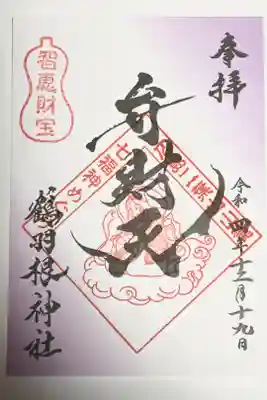 奉拝
弁財天
令和四年十二月十九日
智恵財宝
七福神めぐり
鶴羽根神社